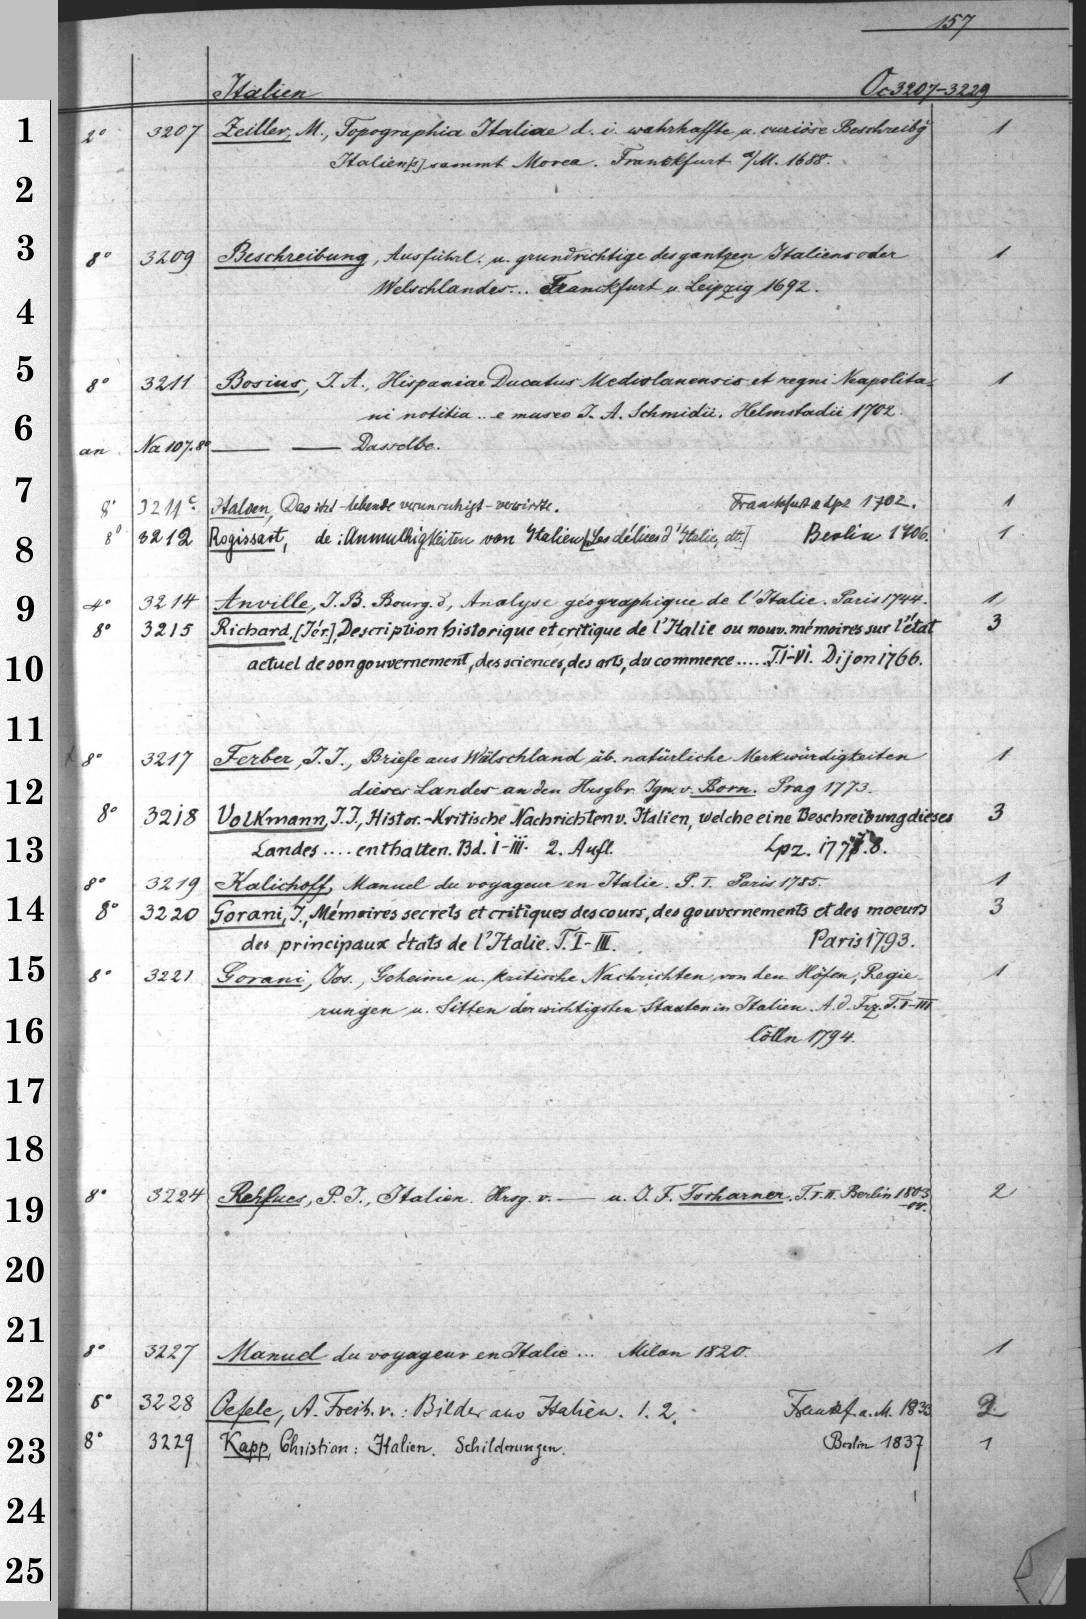 157
Italien Oc 3207-3229
1 2° 3207 Zeiller, M., Topographia Italiae d. i. wahrhaffte u. curiöse Beschreibg 1
Italien[s] sammt Morea. Franckfurt a/M. 1688.
2
3 8° 3209 Beschreibung, Ausführl. u. grundrichtige des gantzen Italiens oder 1
Welschlandes... Franckfurt u. Leipzig 1692.
4
5 8° 3211 Bosius, J. A., Hispaniae Ducatus Mediolanensis et regni Neapolita- 1
6 ni notitia .. e museo J. A. Schmidii. Helmstadii 1702.
an Na 107.8° — — Dasselbe.
7 8° 3211c Italien, Das itzt-lebende verunruhigt-verwirrte. Franckfurt u Lpz 1702. 1
8 8° 3212 Rogissart, de: Anmuthigkeiten von Italien [Les délices d'Italie, dt.] Berlin 1706. 1
9 4° 3214 Anville, J. B. Bourg. d', Analyse géographique de l'Italie. Paris 1744. 1
8° 3215 Richard, [Jér.], Description historique et critique de l'Italie ou nouv. mémoires sur l'état 3
10 actuel de son gouvernement, des sciences, des arts, du commerce ..... T. I-VI. Dijon 1766.
11
8° 3217 Ferber, J. J., Briefe aus Wälschland üb. natürliche Merkwürdigkeiten 1
12 dieses Landes an den Hrsgbr Ign. v. Born. Prag 1773.
8° 3218 Volkmann, J. J., Histor.-Kritische Nachrichten v. Italien, welche eine Beschreibung dieses 3
13 Landes .... enthalten. Bd. I-III. 2. Aufl. Lpz. 1777.8.
8° 3219 Kalichoff, Manuel du voyageur en Italie. P. I. Paris 1785. 1
14 8° 3220 Gorani, J., Mémoires secrets et critiques des cours, des gouvernements et des moeurs 3
des principaux états de l'Italie. T. I-III. Paris 1793.
15 8° 3221 Gorani, Jos., Geheime u. kritische Nachrichten von den Höfen, Regie- 1
rungen u. Sitten der wichtigsten Staaten in Italien. A. d. Frz. T. I-III
16 Cölln 1794.
17
18
19 8° 3224 Rehfues, P. J., Italien. Hrsg. v. — u. O. F. Tscharner. T. I. II. Berlin 1803 2
20
21
8° 3227 Manuel du voyageur en Italie ... Milan 1820. 1
22 8° 3228 Oefele, A. Freih. v.: Bilder aus Italien. 1. 2. Frankf. a. M. 1833 2
23 8° 3229 Kapp, Christian: Italien. Schilderungen. Berlin 1837 1
24
25